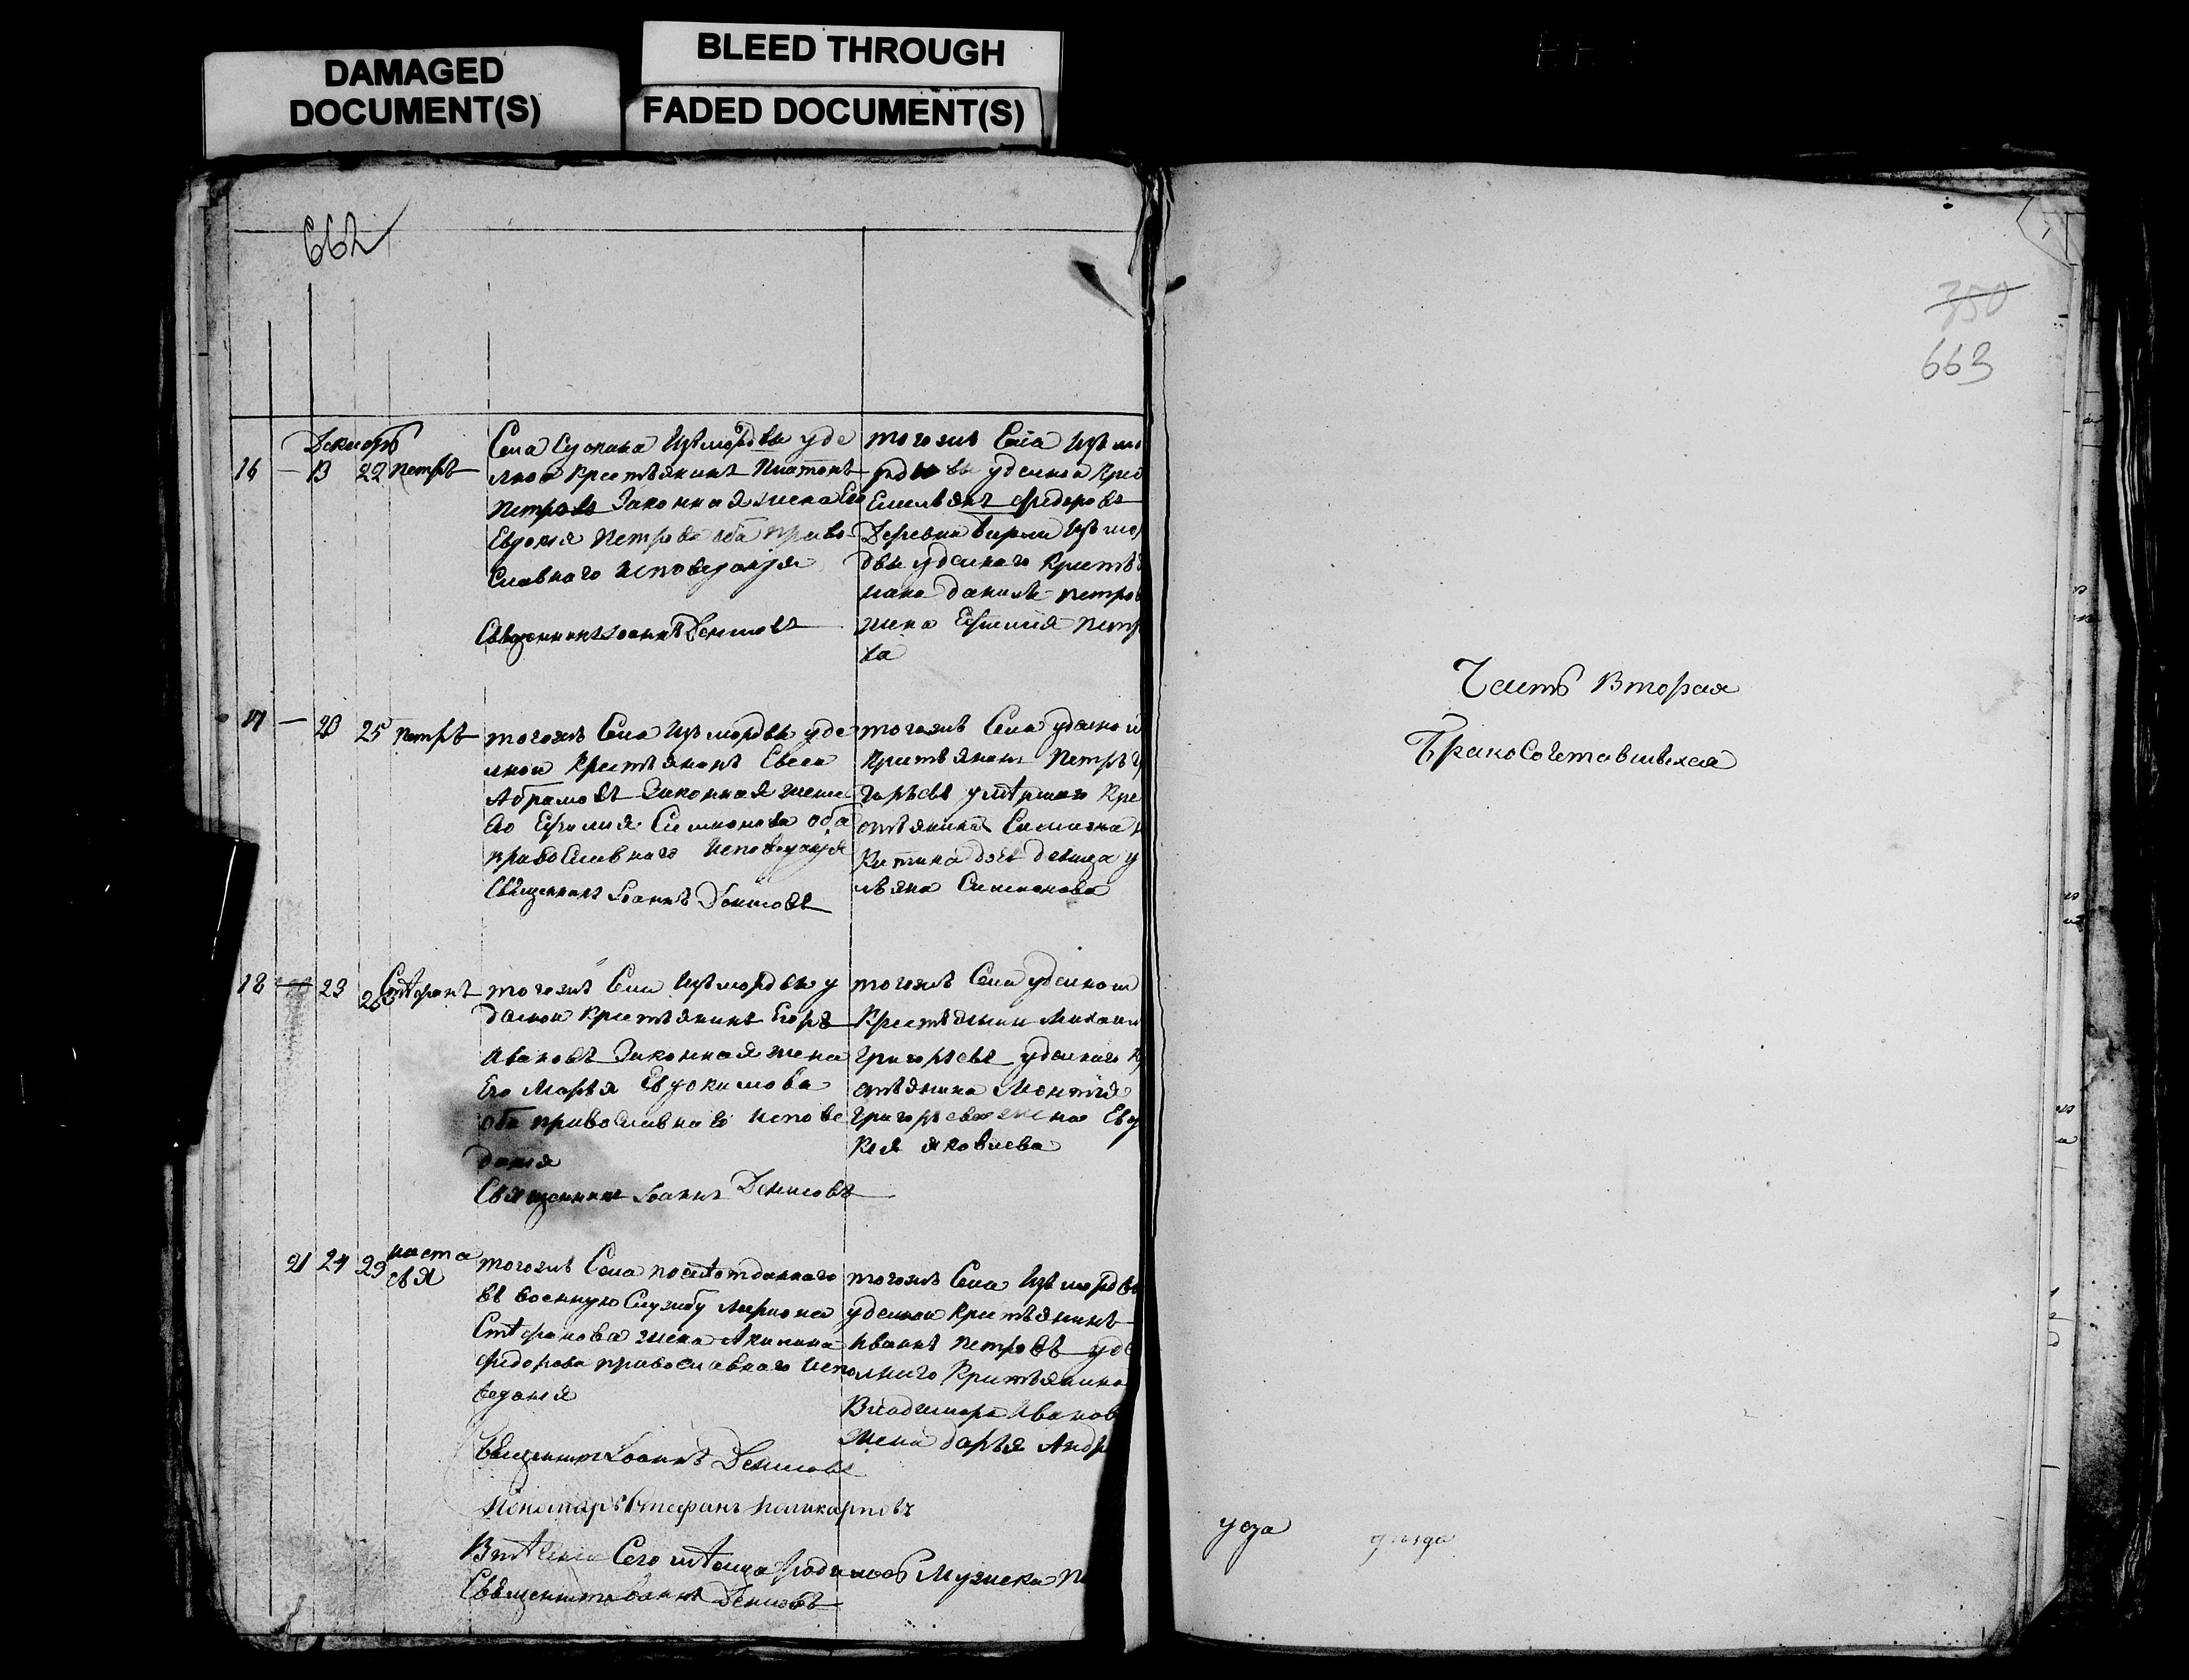 DAMAGED
DOCUMENT(S)
BLEED THROUGH
FADED DOCUMENT(S)
662
Декабрь
16 — 13 22 Петръ
Села Сускана Изъ мордвы уде
лной крестьянинъ Платонъ
Петровъ Законная жена Его
Евдокия Петрова оба право
славного исповедания
Священникъ Иоаннъ Денисовъ
тогожъ Села Изъ мо
рдвы уделной кре
Емельянъ Федоровъ
Деревни Изъ мор
двы уделного крестья
нина Данилы Петров
жена Ефимия Петро
ва
17 — 20 25 Петръ
тогожъ Села Изъ мордвы уде
лной крестьянинъ Евсей
Абрамовъ Законная жена
Его Ефимия Симионова оба
православного исповедания
Священникъ Иоаннъ Денисовъ
тогожъ Села уделной
крестьянинъ Петръ
умершаго кре
стьянина Симиона
дочь девица у
льяна Симионова
18 — 23 26 Стефанъ
тогожъ Села Изъ мордвы у
делной крестьянинъ Егоръ
Ивановъ Законная жена
Его Марья Евдокимова
оба православнаго испове
дания
Священникъ Иоаннъ Денисовъ
тогожъ Села уделной
крестьянин Михаил
Григорьевъ уделнаго к
стьянина
Григорьева жена Евд
кия Яковлева
21 24 29 наста
сья
тогожъ Села
въ военную Службу Лариона
Стефанова жена Акилина
Федорова православнаго испо
ведания
Священникъ Иоаннъ Денисовъ
Пономарь Стефанъ Поликарповъ
тогожъ Села Изъ мордвы
уделной крестьянинъ
Иваннъ Петровъ уде
лнаго крестьянина
Владимира Иванов
жена Дарья Андр
Сего месяца родилось Мужска
Священникъ Иоаннъ Денисовъ
350
663
Часть Вторая
Бракосочетавшихся